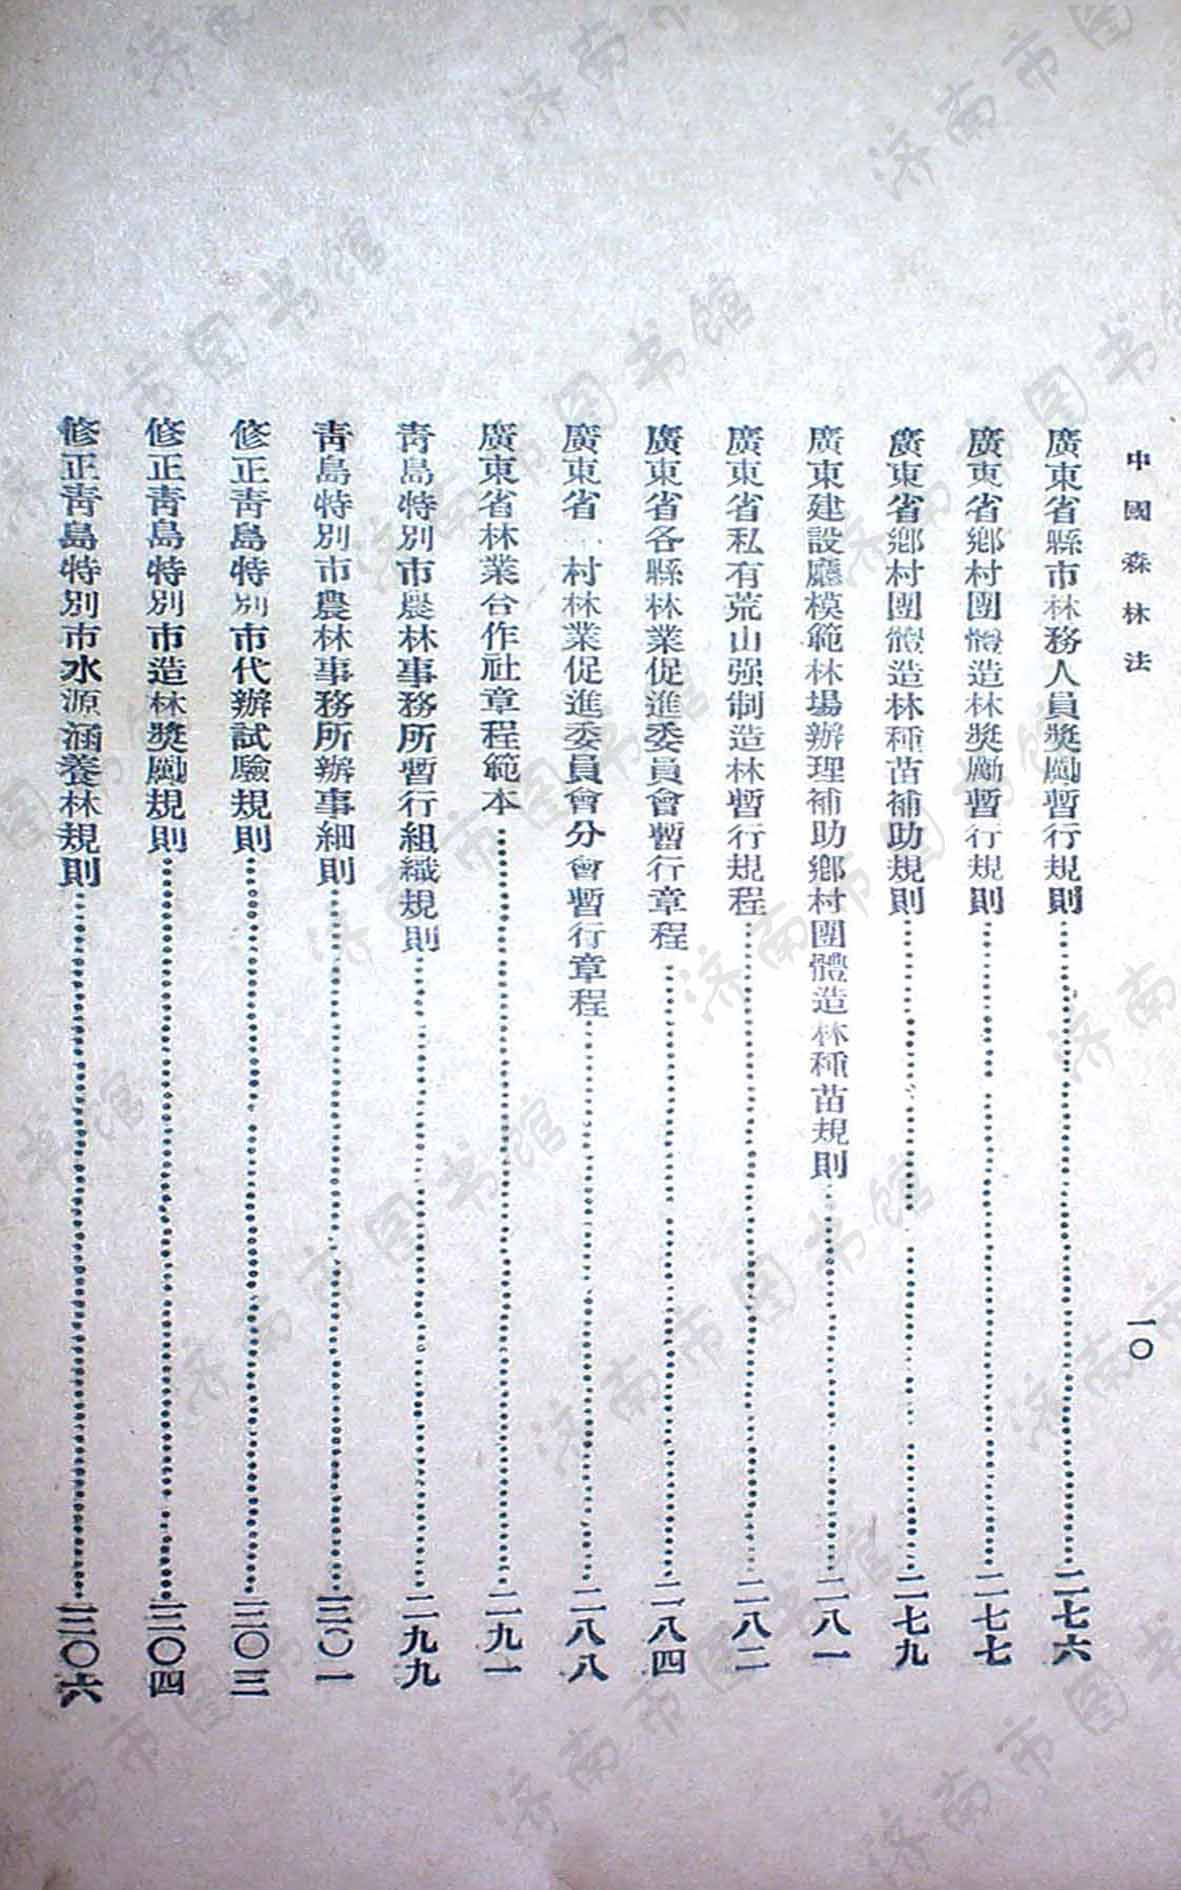 中國森林法
一〇
廣東省縣市林務人員獎勵暫行規則……二七六
廣東省鄉村團體造林獎勵暫行規則……二七七
廣東省鄉村團體造林種苗補助規則……二七九
廣東建設廳模範林場辦理補助鄉村團體造林種苗規則……二八一
廣東省私有荒山强制造林暫行規程……二八二
廣東省各縣林業促進委員會暫行章程……二八四
廣東省 村林業促進委員會分會暫行章程……二八八
廣東省林業合作社章程範本……二九一
青島特別市農林事務所暫行組織規則……二九九
青島特別市農林事務所辦事細則……三〇一
修正青島特別市代辦試驗規則……三〇三
修正青島特別市造林獎勵規則……三〇四
修正青島特別市水源涵養林規則……三〇六
济南市图书馆